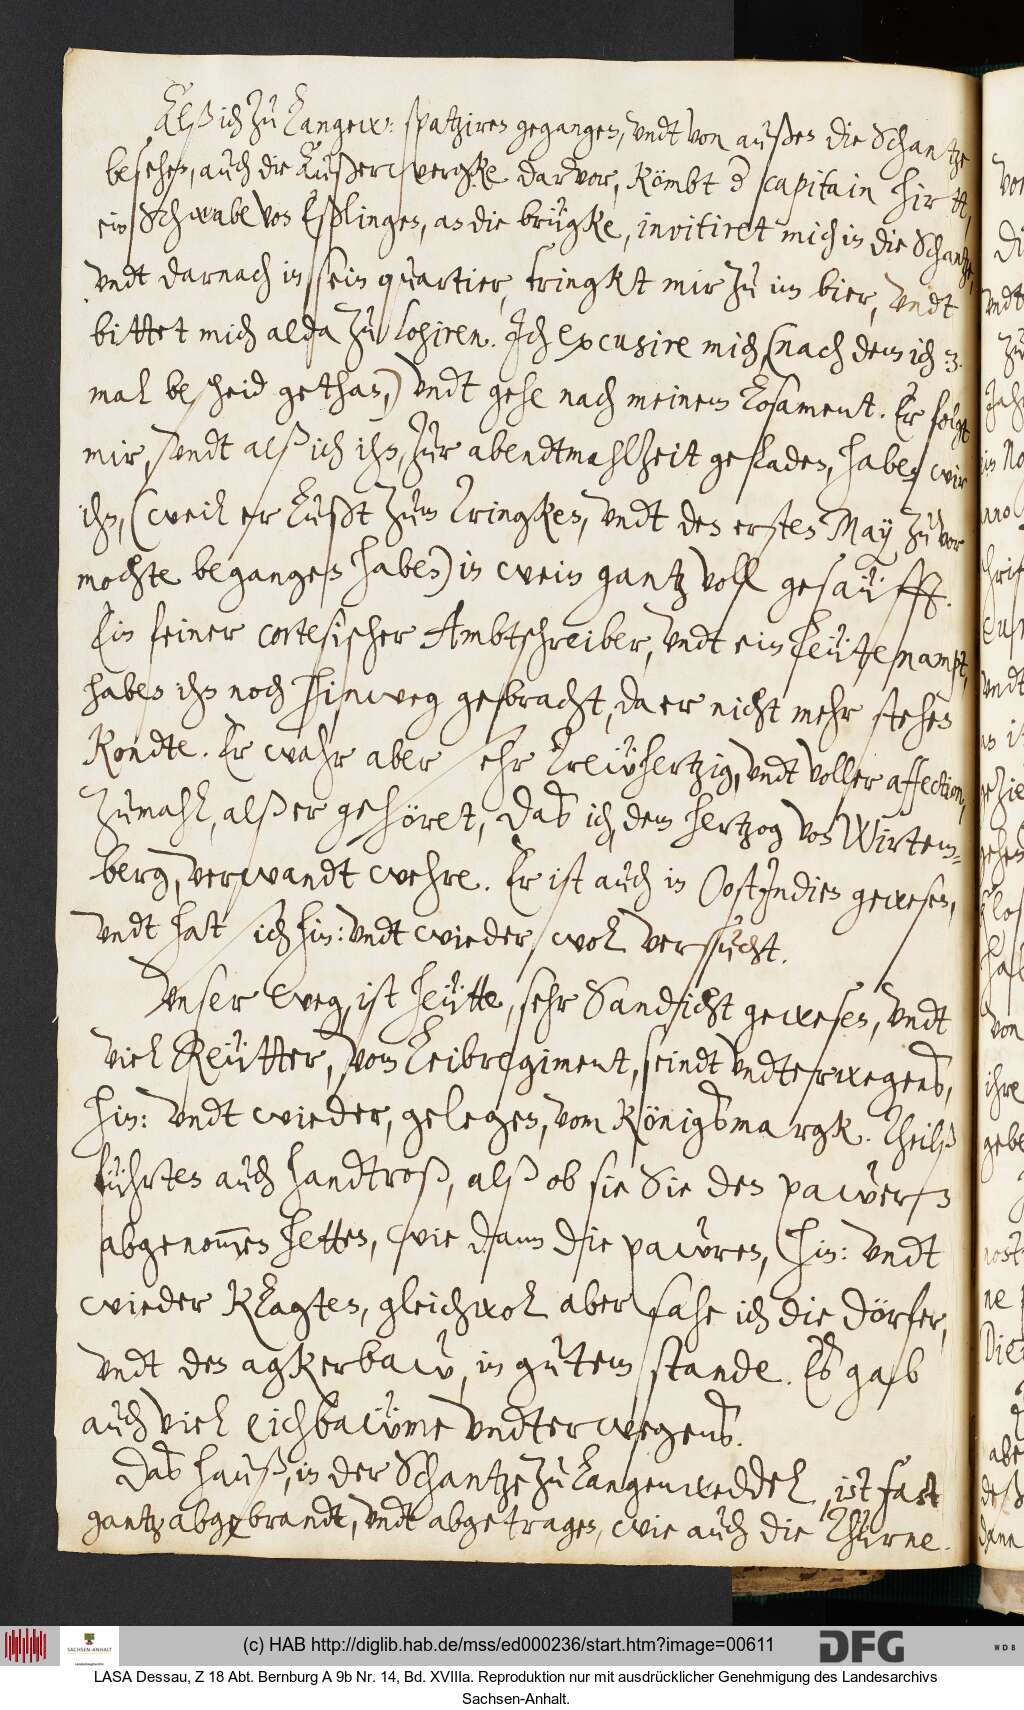 Alß ich zu Langew: spatziren gegangen, undt von außen die Schantze
besehen, auch die Außerwergke darvor, kömbt d capitain Hirtt,
ein Schwabe von Eßlingen, an die brügke, invitiret mich in die Schantze,
undt darnach in sein quartier, tringkt mir zu im bier, undt
bittet mich alda zu losiren. Ich excusire mich (nach dem ich 3.
mal bescheid gethan,) undt gehe nach meinem Losament. Er folgt
mir, undt alß ich ihn, zur abendtmahlzeit geladen, haben wir
ihn, (weil er Lußt zum Tringken, undt den ersten May, zuvor
mochte begangen haben) in wein gantz voll gesaüfft.
Ein feiner cortesischer Ambtschreiber, undt ein Leütenampt,
haben ihn noch hinweg gebracht, da er nicht mehr stehen
kondte. Er wahr aber sehr treẅhertzig, undt voller affection,
zumahl, alß er gehöret, das ich, dem Hertzog von Wirtem-
berg, verwandt wehre. Er ist auch in OostIndien gewesen,
undt hat sich hin: undt wieder, wol versucht.
Unser weg, ist heütte, sehr Sandicht gewesen, undt
viel Reütter, vom Leibregiment, seindt undterwegens,
hin: undt wieder, gelegen, vom Königsmargk. Theilß
führten auch handtroß, alß ob sie Sie den pawern
abgenom̅en hetten, wie dann die pawren, hin: undt
wieder klagten, gleichwol aber sahe ich die dörfer,
undt den agkerbaw, in gutem stande. Es gab
auch viel Eichbaẅme undterwegens.
Das hauß, in der Schantze zu Langenweddel, ist fast
gantz abgebrandt, undt abgetragen, wie auch die Thürne.
(c) HAB http://diglib.hab.de/mss/ed000236/start.htm?image=00611
DFG
WDB
SACHSEN-ANHALT
LASA Dessau, Z 18 Abt. Bernburg A 9b Nr. 14, Bd. XVIIIa. Reproduktion nur mit ausdrücklicher Genehmigung des Landesarchivs
Sachsen-Anhalt.